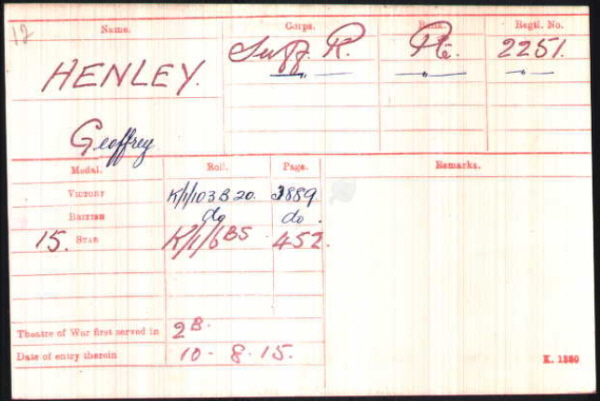 12
Name. Corps. Rank. Regtl. No.
HENLEY. Suff. R. Pte. 2251.
" " "
Geoffrey
Medal. Roll. Page. Remarks.
VICTORY K/1/103 B 20. 3889
BRITISH do do.
15. STAR K/1/6 BS 452.
Theatre of War first served in 2B.
Date of entry therein 10 - 8 - 15.
K. 1380